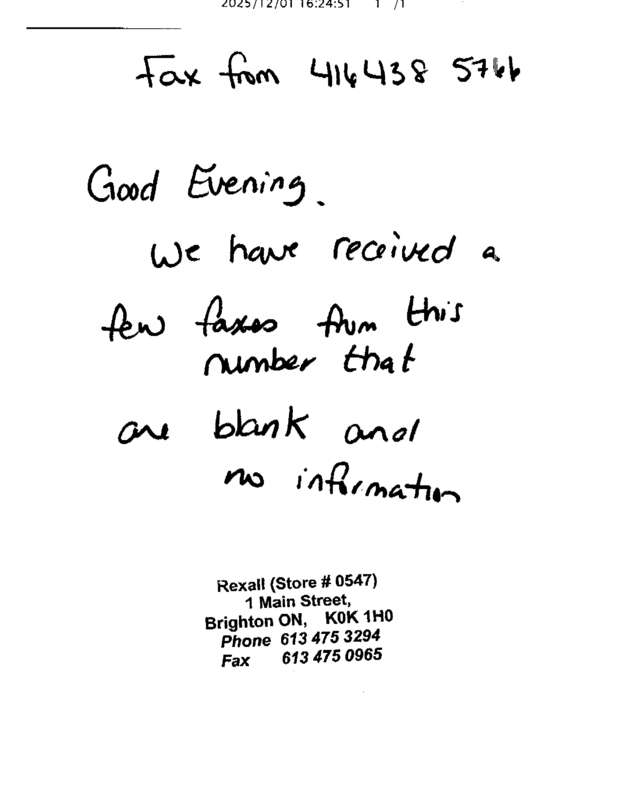 2025/12/01 16:24:51 1 /1
Fax from 416 438 5766
Good Evening.
We have received a
few faxes from this
number that
are blank and
no information
Rexall (Store # 0547)
1 Main Street,
Brighton ON, K0K 1H0
Phone 613 475 3294
Fax 613 475 0965